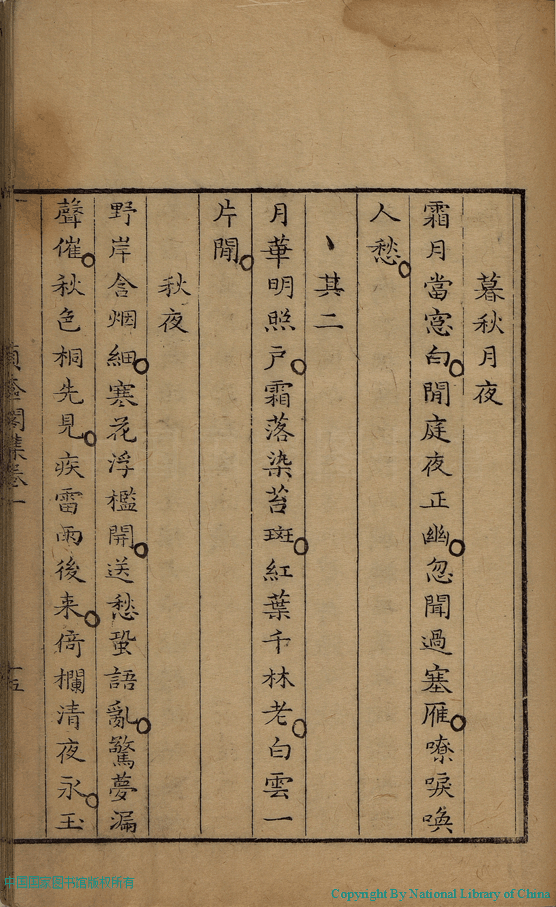 暮秋月夜
霜月當窓白閒庭夜正幽忽聞過塞雁嘹唳喚
人愁
丶其二
月華明照戶霜落染苔斑紅葉千林老白雲一
片閒
秋夜
野岸含烟細寒花浮檻開送愁蛩語亂驚夢漏
聲催秋色桐先見疾雷雨後来倚欄清夜永玉
閣集卷一
十五
中国国家图书馆版权所有
Copyright By National Library of China